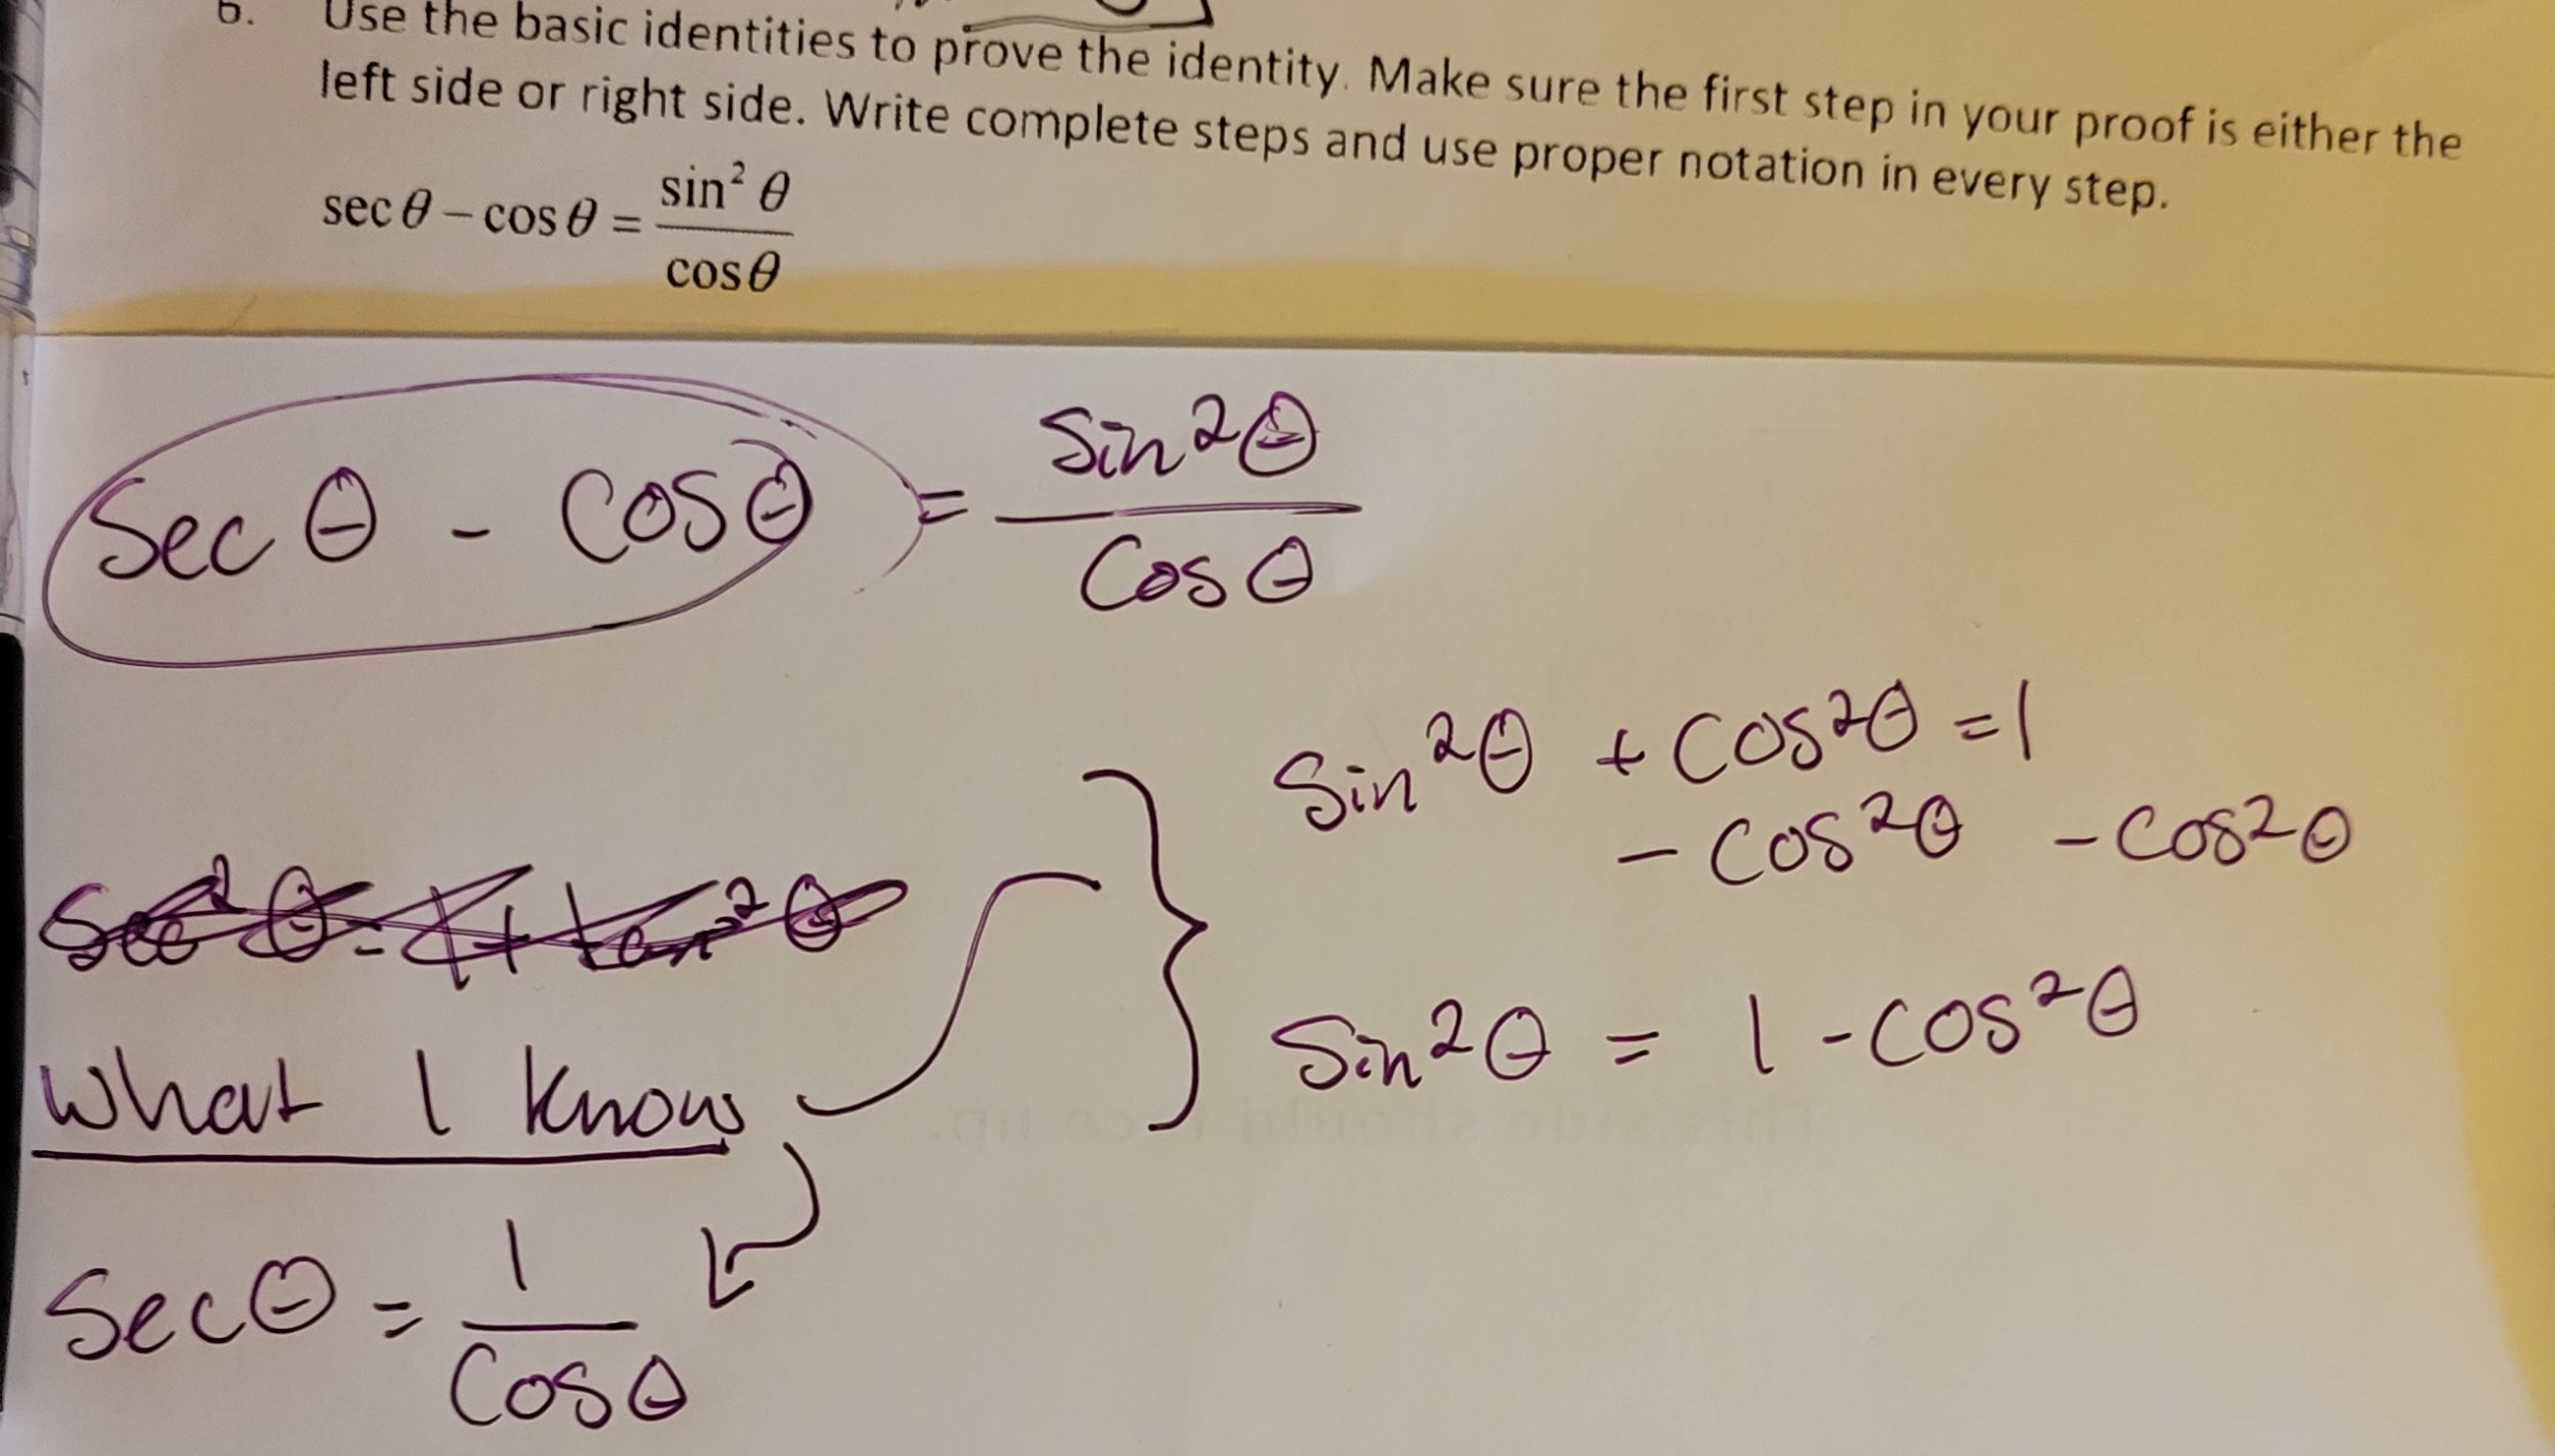 6. Use the basic identities to prove the identity. Make sure the first step in your proof is either the
left side or right side. Write complete steps and use proper notation in every step.
sec θ − cos θ = sin² θ / cos θ
Sec θ - Cos θ = Sin²θ / Cos θ
Sin²θ + Cos²θ = 1
- Cos²θ - Cos²θ
Sec²θ = 1 + tan²θ
Sin²θ = 1 - Cos²θ
What I Know
Sec θ = 1 / Cos θ